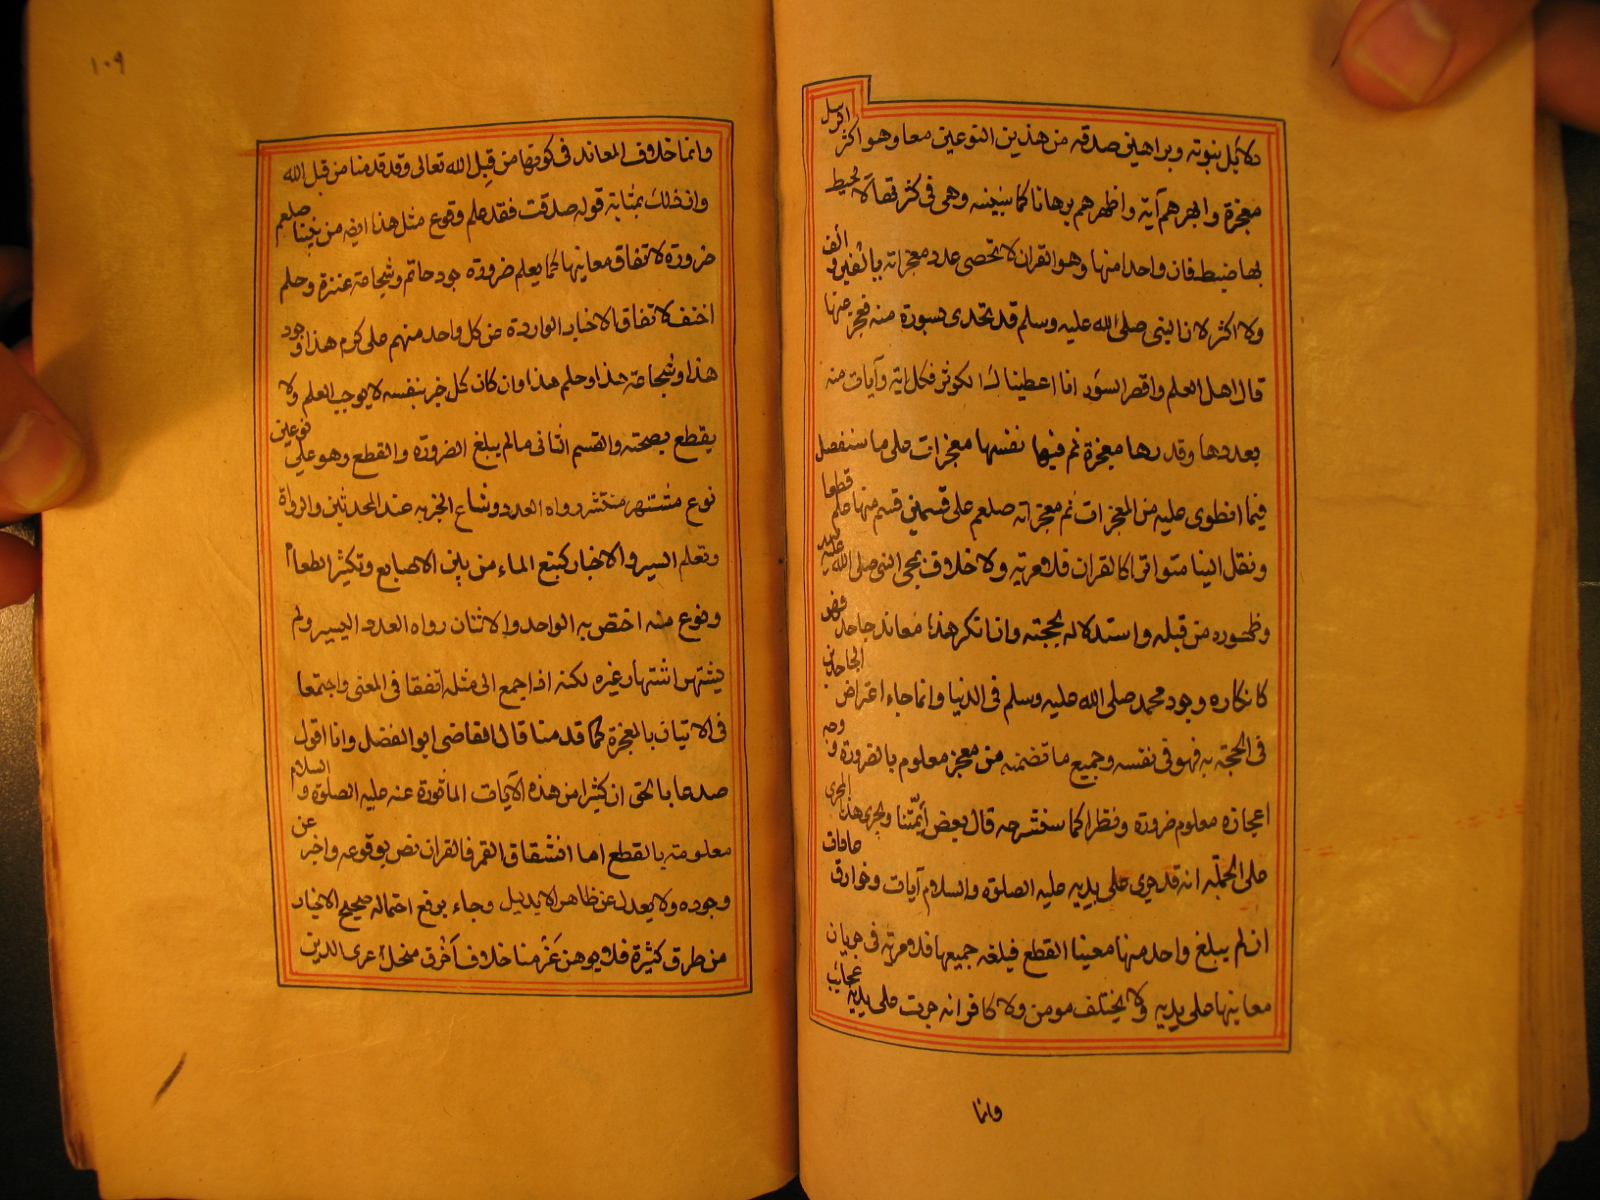 دلائل نبوته وبراهين صدقه من هذين النوعين معا وهو اكثر الرسل
معجزة وابهرهم آية واظهرهم برهانا كما سنبينه وهى فى كثرتها لا يحيط
بها ضبط فان واحدا منها وهو القران لا تحصى عدد معجزاته بالف ولا الفين
ولا اكثر لان النبى صلى الله عليه وسلم قد تحدى بسورة منه فعجز عنها
قال اهل العلم واقصر السور انا اعطيناك الكوثر فكل اية وآيات منه
بعددها وقدرها معجزة ثم فيها نفسها معجزات على ما سنفصل
فيما انطوى عليه من المعجزات ثم معجزاته صلعم على قسمين قسم منها علم قطعا
ونقل الينا متواترا كالقران فلا مرية ولا خلاف بمجى النبى صلى الله عليه
وظهوره من قبله واستدلاله بحجته وان انكر هذا معاند جاحد فهو
كانكاره وجود محمد صلى الله عليه وسلم فى الدنيا وانما جاء اعتراض الجاحدين
فى الحجة به فهو فى نفسه وجميع ما تضمنه من معجز معلوم بالضرورة ووجه
اعجازه معلوم ضرورة ونظرا كما سنشرحه قال بعض أئمتنا ويجرى هذا المجرى
على الجملة انه قد جرى على يديه عليه الصلوة والسلام آيات وخوارق عادات
ان لم يبلغ واحد منها معينا القطع فيبلغه جميعها فلا مرية فى جريان
معانيها على يديه ولا يختلف مومن ولا كافر انه جرت على يديه عجائب
وانما
١٠٩
وانما خلاف المعاند فى كونها من قبل الله تعالى وقد قدمنا من قبل الله
وان ذلك بمثابة قوله صدقت فقد علم وقوع مثل هذا ايضه من نبينا صلعم
ضرورة لاتفاق معانيها كما يعلم ضرورة جود حاتم وشجاعة عنترة وحلم
احنف لاتفاق الاخبار الواردة عن كل واحد منهم على كرم هذا وجود
هذا وشجاعة هذا وحلم هذا وان كان كل خبر بنفسه لا يوجب العلم ولا
يقطع بصحته والقسم الثانى مالم يبلغ الضرورة والقطع وهو على نوعين
نوع مشتهر منتشر رواه العدد وشاع الخبر به عند المحدثين والرواة
ونقلة السير والاخبار كنبع الماء من بين الاصابع وتكثير الطعام
ونوع منه اختص به الواحد والاثنان رواه العدد اليسير ولم
يشتهر اشتهار غيره لكنه اذا جمع الى مثله اتفقا فى المعنى واجتمعا
فى الاتيان بالمعجزة كما قدمنا قال القاضى ابو الفضل وانا اقول
صدعا بالحق ان كثيرا من هذه الآيات الماثورة عنه عليه الصلوة والسلام
معلومة بالقطع اما انشقاق القمر فالقران نص بوقوعه واخبر عن
وجوده ولا يعدل عن ظاهر الا بدليل وجاء برفع احتماله صحيح الاخبار
من طرق كثيرة فلا يوهن عزمنا خلاف أخرق منحل عرى الدين